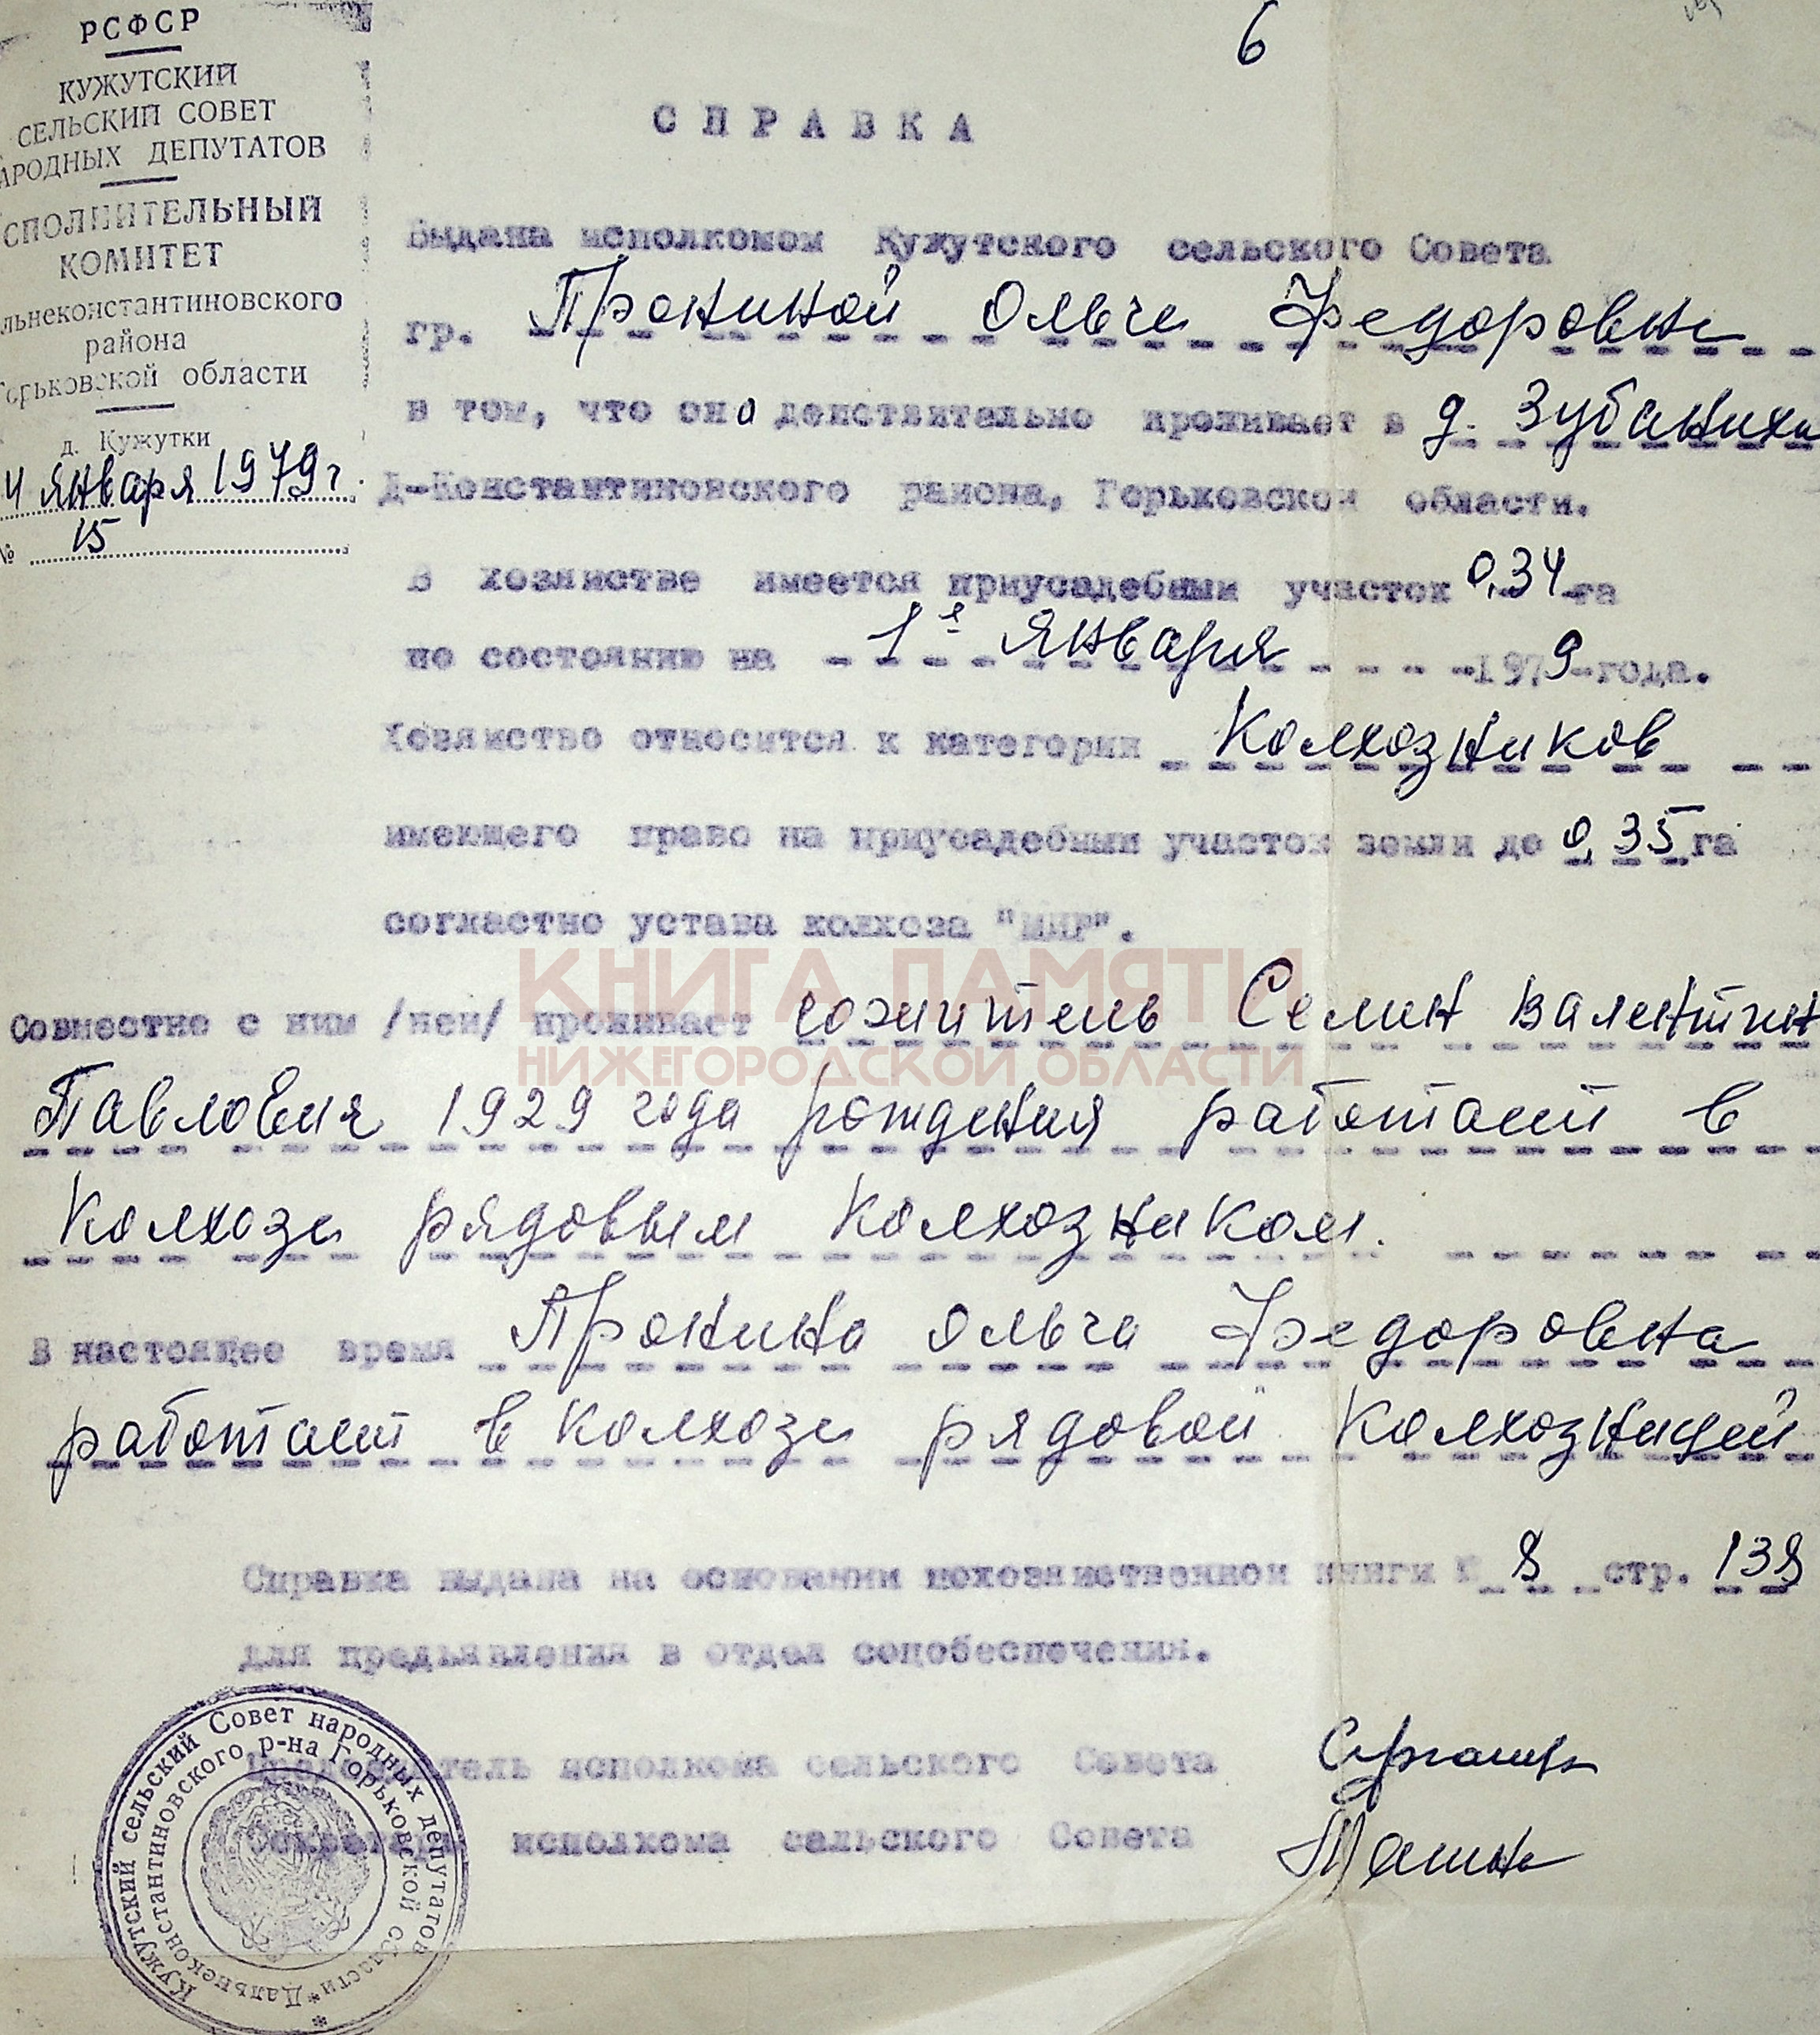 6
РСФСР
КУЖУТСКИЙ
СЕЛЬСКИЙ СОВЕТ
АРОДНЫХ ДЕПУТАТОВ
СПОЛНИТЕЛЬНЫЙ
КОМИТЕТ
льнеконстантиновского
района
Горьковской области
д. Кужутки
4 января 1979 г.
№ 15
СПРАВКА
Выдана исполкомом Кужутского сельского Совета
гр. Прониной Ольге Федоровне
в том, что она действительно проживает в д. Зубаниха
Д-Константиновского района, Горьковской области.
В хозяйстве имеется приусадебный участок 0,34 га
по состоянию на 1е января 1979 года.
Хозяйство относится к категории колхозников
имеющего право на приусадебный участок земли до 0,35 га
согластно устава колхоза "МИР".
КНИГА ПАМЯТИ
НИЖЕГОРОДСКОЙ ОБЛАСТИ
Совместно с ним /ней/ проживает сожитель Семин Валентин
Павлович 1929 года рождения работает в
колхозе рядовым колхозником.
В настоящее время Пронина Ольга Федоровна
работает в колхозе рядовой колхозницей
Справка выдана на основании похозяйственной книги № 8 стр. 138
для предъявления в отдел соцобеспечения.
Председатель исполкома сельского Совета
Секретарь исполкома сельского Совета
Кужутский сельский Совет народных депутатов
Дальнеконстантиновского р-на Горьковской области